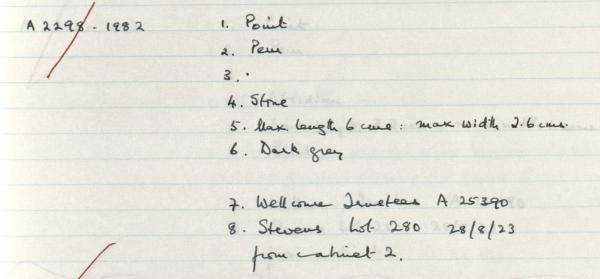 A 2298 - 1982 1. Point
2. Peru
3. .
4. Stone
5. Max length 6 cms : max width 2.6 cms.
6. Dark grey
7. Wellcome Trustees A 25390
8. Stevens Lot 280 28/8/23
from cabinet 2.